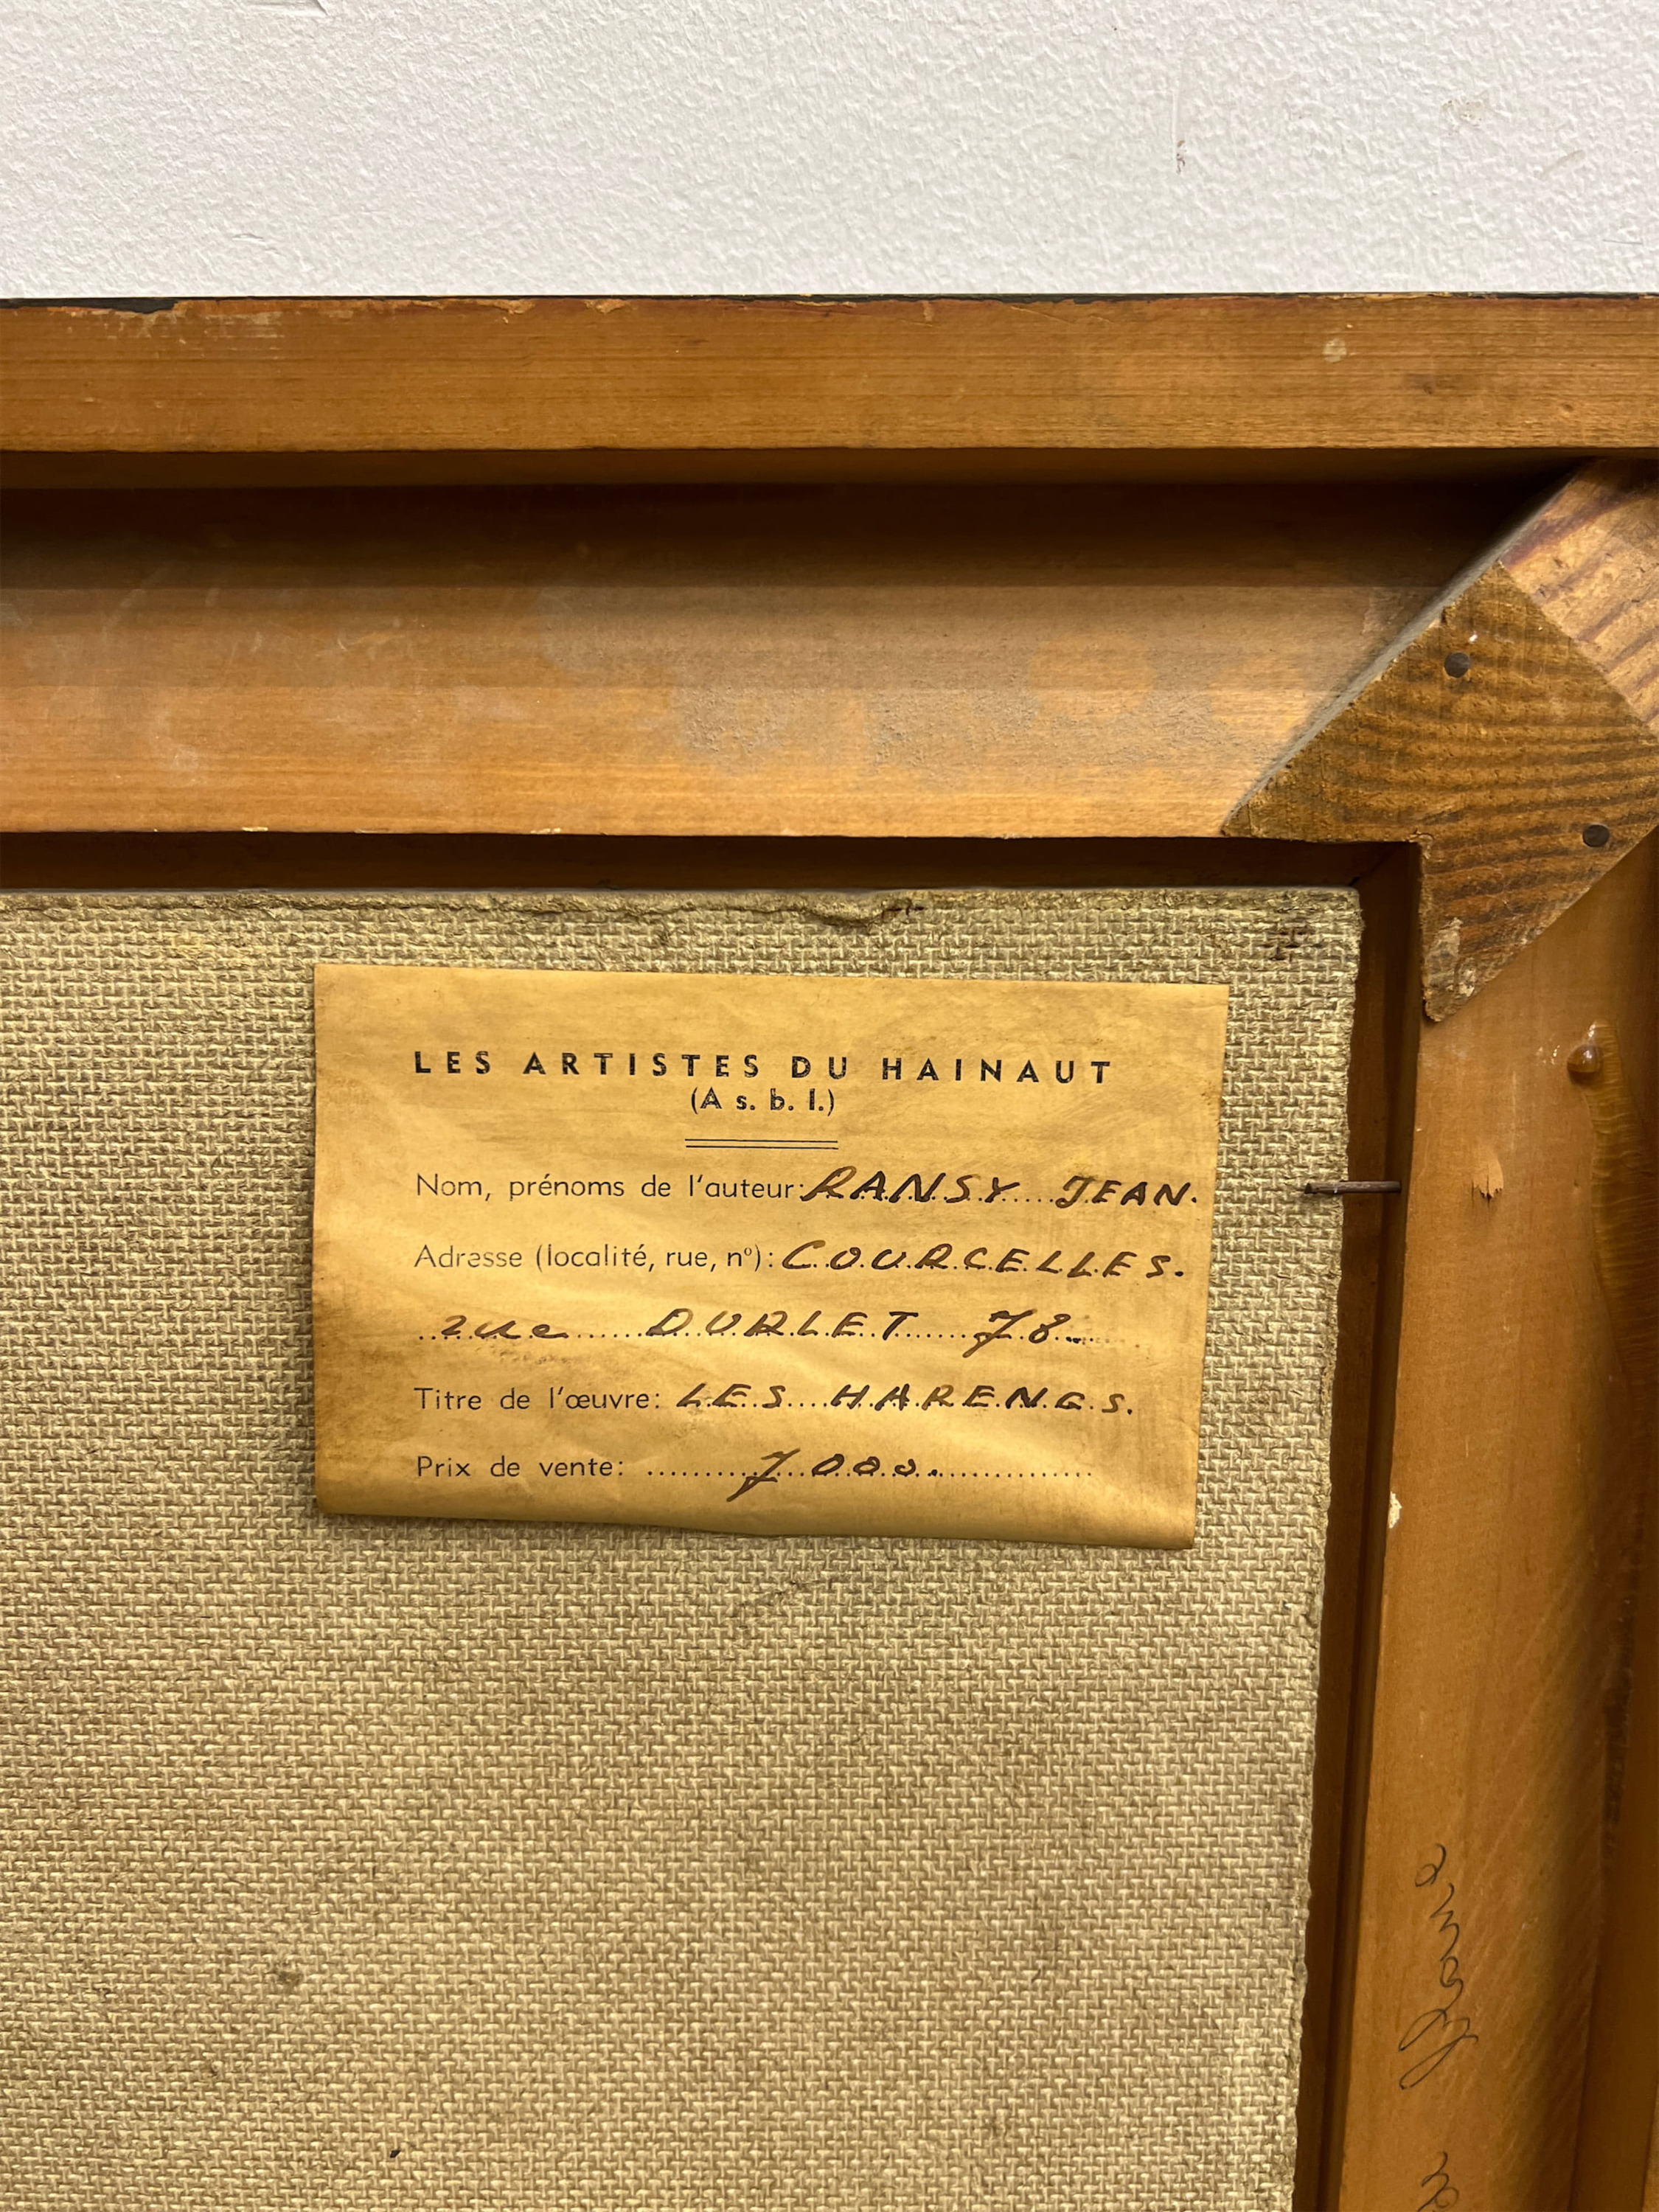 LES ARTISTES DU HAINAUT
(A s. b. l.)
Nom, prénoms de l'auteur: RANSY JEAN.
Adresse (localité, rue, nº): COURCELLES.
rue DURLET 78
Titre de l'œuvre: LES HARENGS.
Prix de vente: 7000.